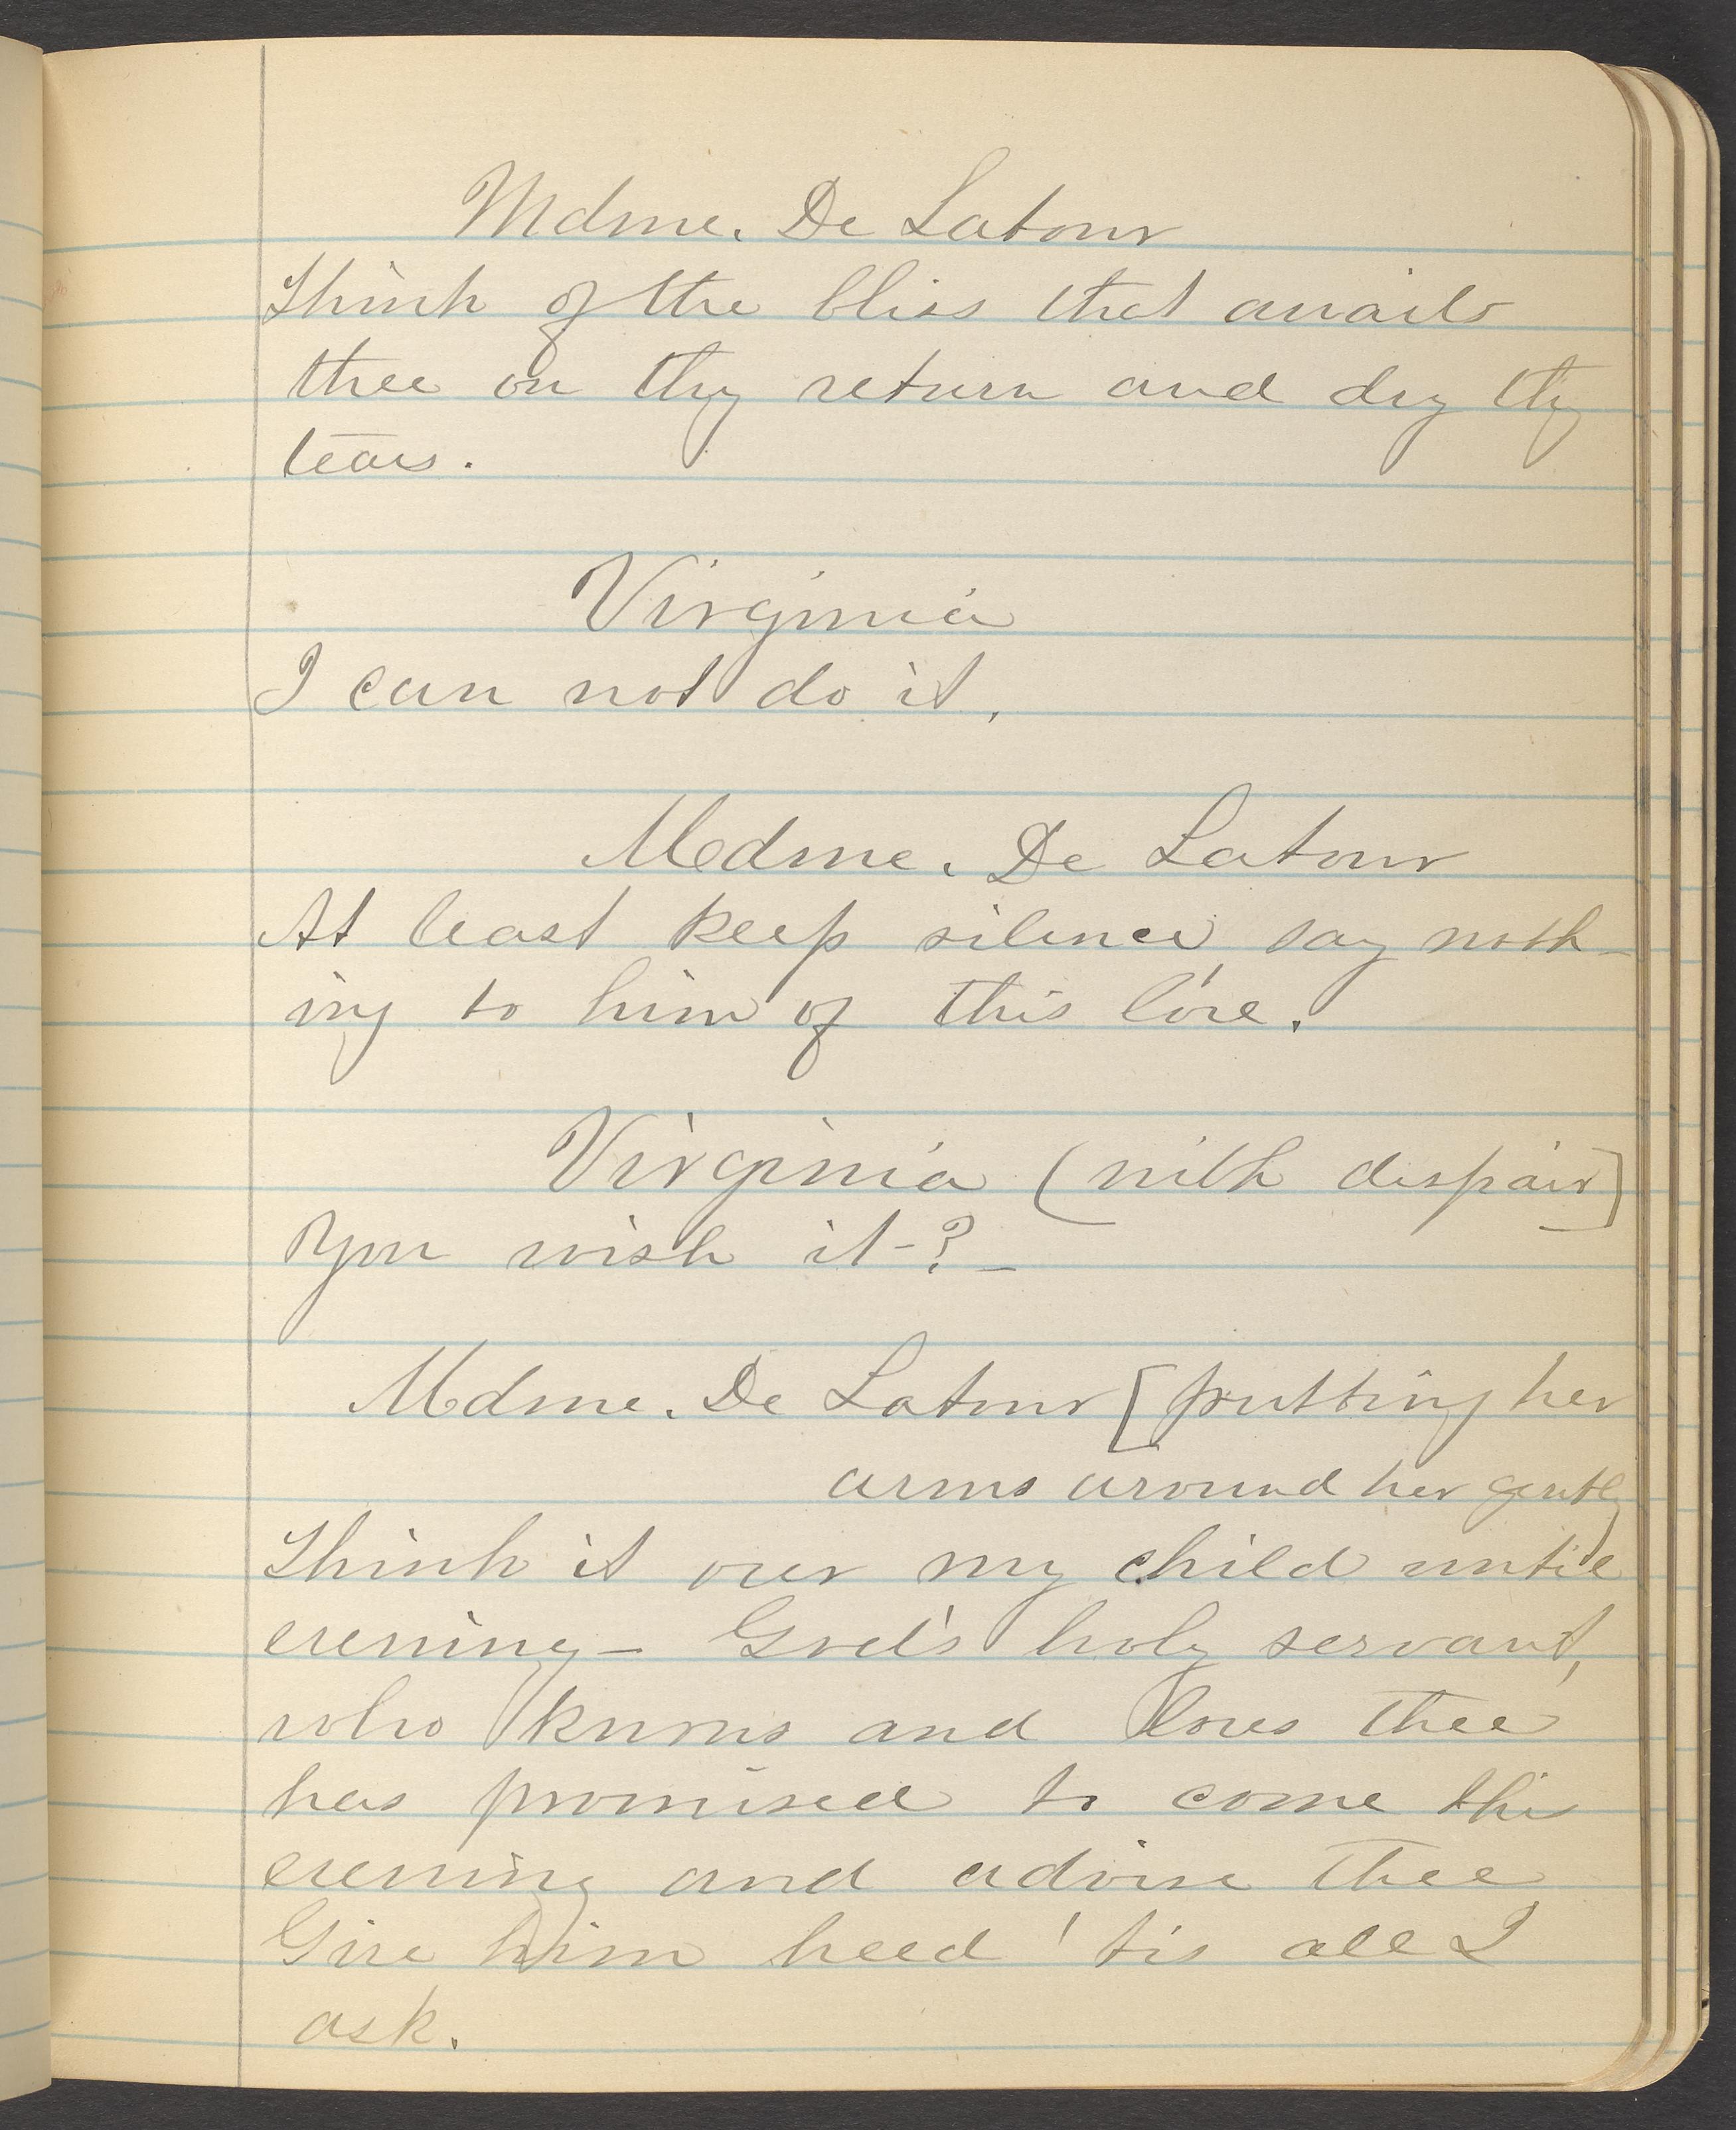 Mdme. De Latour
Think of the bliss that awaits
thee on thy return and dry thy
tears.
Virginia
I can not do it.
Mdme. De Latour
At least keep silence, say noth-
ing to him of this love.
Virginia (with despair]
You wish it-?-
Mdme. De Latour [putting her
arms around her gently)
Think it over my child until
evening- God's holy servant,
who knows and loves thee
has promised to come this
evening and advise thee
Give him heed 'tis all I
ask.